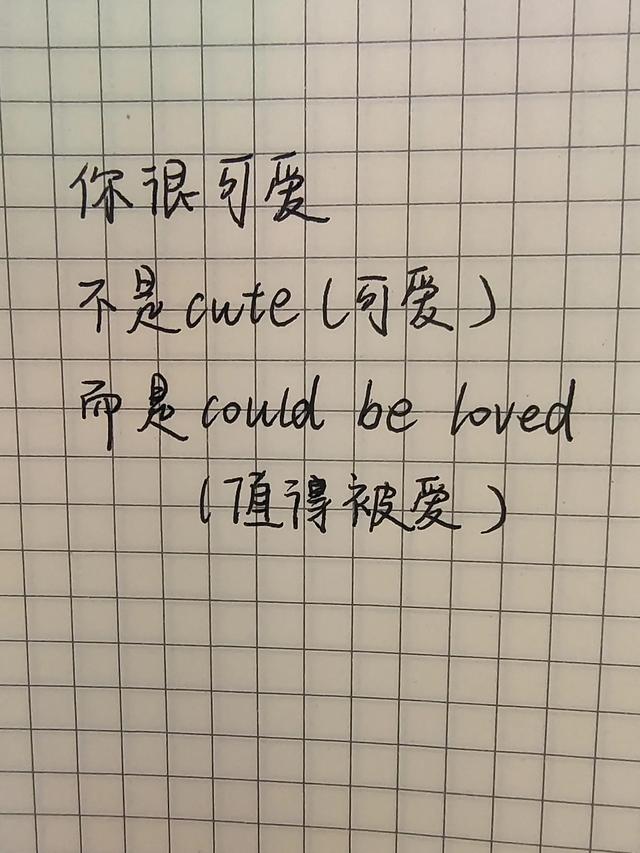 你很可爱
不是cute(可爱)
而是could be loved
(值得被爱)